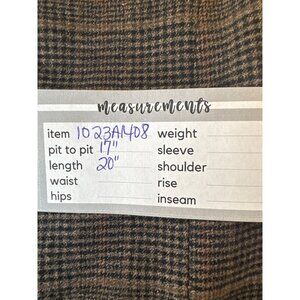 measurements
item 1023AM08 weight
pit to pit 17" sleeve
length 20" shoulder
waist rise
hips inseam